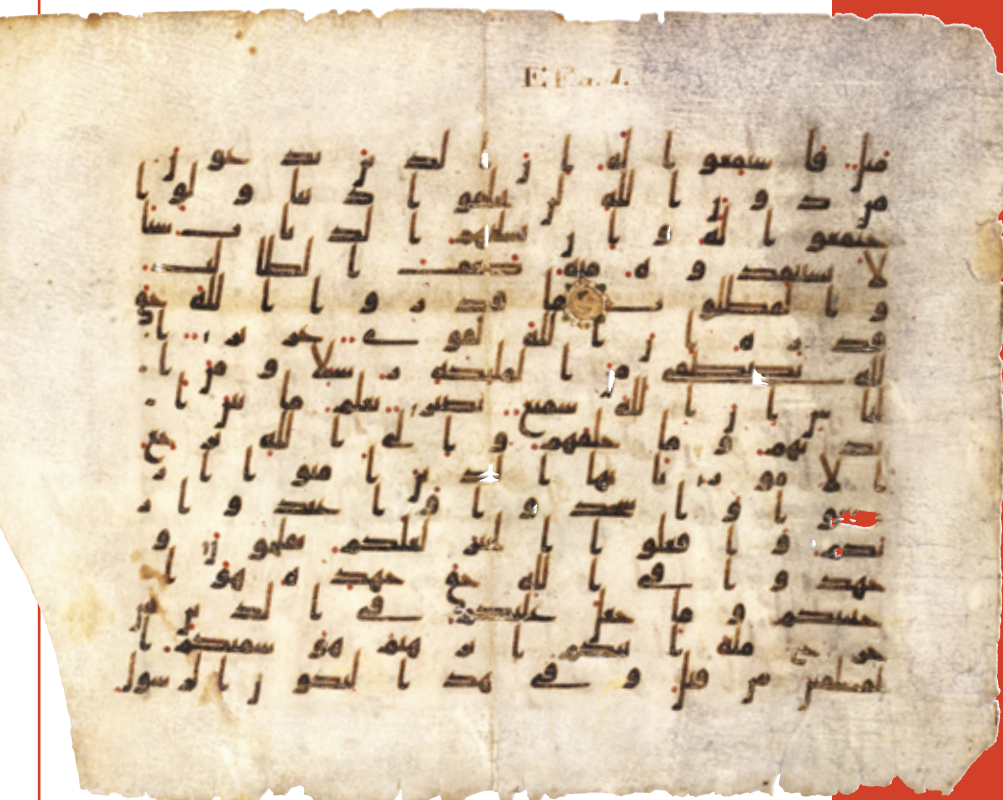 مثل فاستمعوا له ان الذين تدعون
من دون الله لن يخلقوا ذبابا ولو ا
جتمعوا له وان يسلبهم الذباب شيا
لا يستنقذوه منه ضعف الطالب
والمطلوب ما قدروا الله حق
قدره ان الله لقوي عزيز ا
لله يصطفي من المليكة رسلا ومن ا
لناس ان الله سميع بصير يعلم ما بين ا
يديهم وما خلفهم والى الله ترجع
الامور يايها الذين امنوا ار
كعوا واسجدوا واعبدوا ر
بكم وافعلوا الخير لعلكم تفلحون و
جهدوا في الله حق جهده هو ا
جتبيكم وما جعل عليكم في الدين من
حرج ملة ابيكم ابرهيم هو سميكم ا
لمسلمين من قبل وفي هذا ليكون الرسول